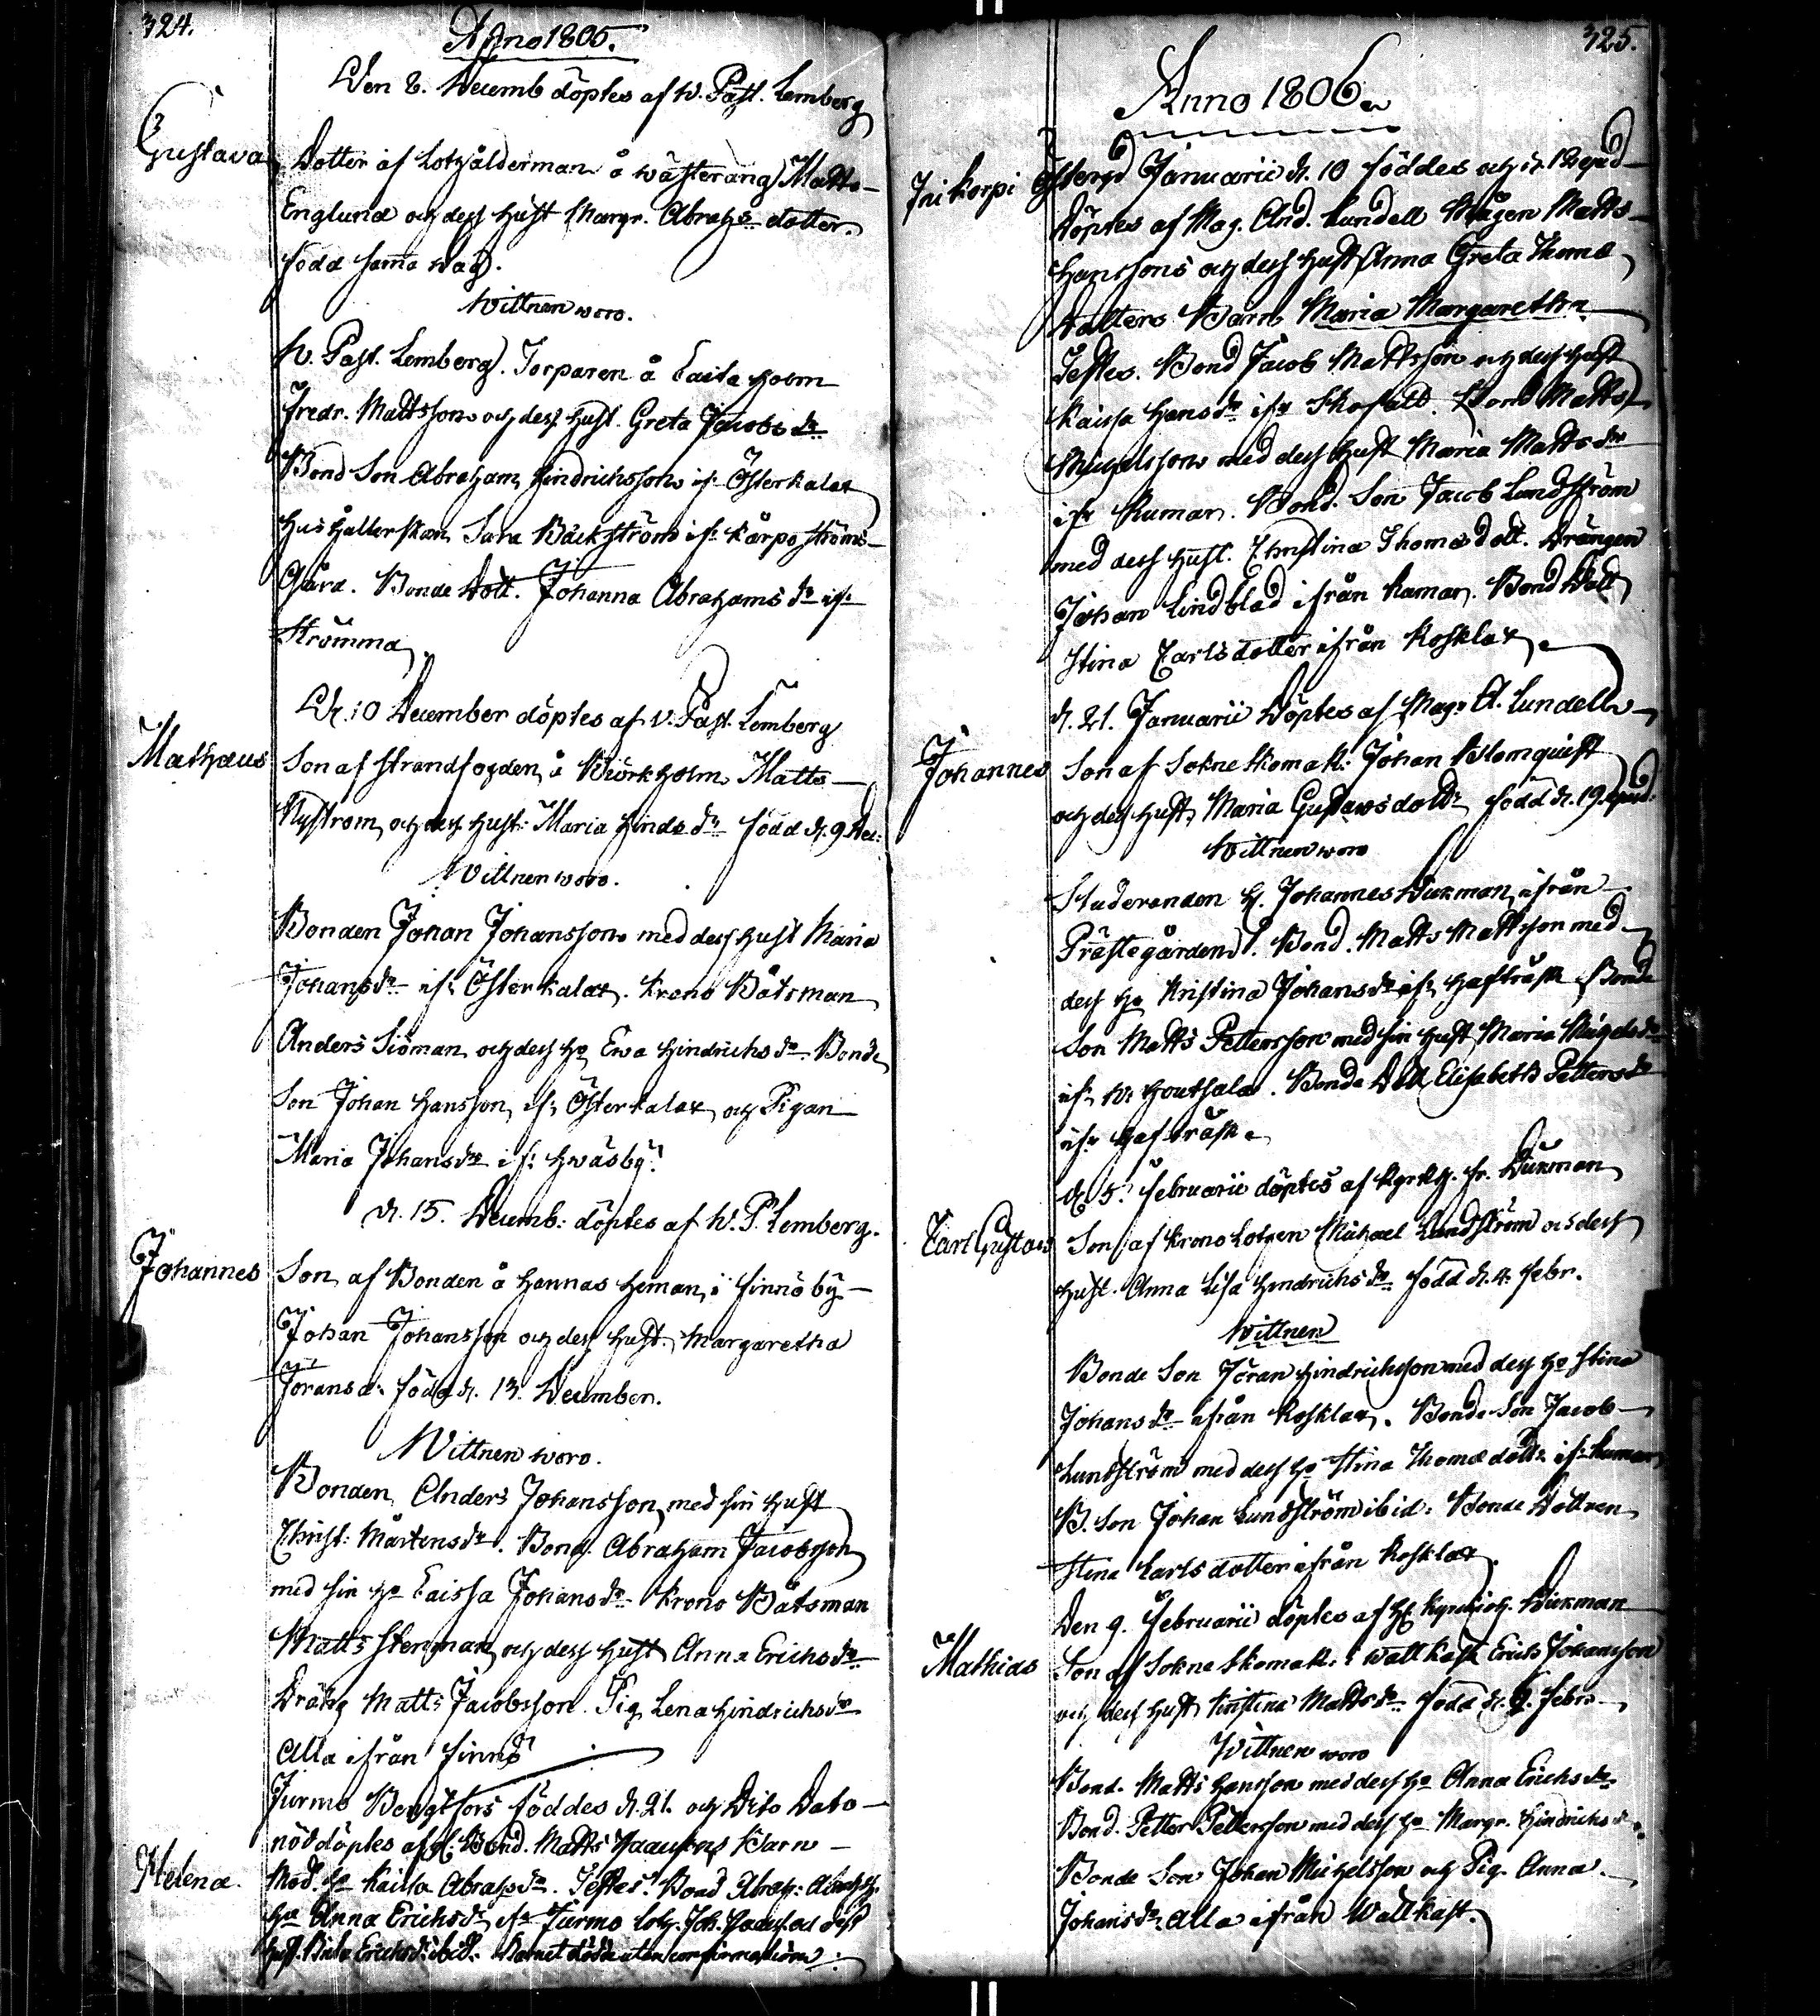 324.
Anno 1805.
Den 8. Decemb döptes af W. Past. Lemberg
Gustava
Dotter af Lotzålderman å Wästerång Matts
Englund och dess hust Margr. Abrahs dotter.
född sama dag.
Wittnen woro.
W. Past. Lemberg. Torparen å holm
Fredr. Mattsson och dess hust. Greta Jacobs dr
Bond Son Abraham Hindrichsson ifr Österkalax
Hushållerskan Sara Bäckström ifr Karpoströms
Gård. Bonde Dott. Johanna Abrahams dr ifr
Strömma
D. 10 December döptes af v. Past. Lemberg
Mathæus
Son af Strandfogden å Biörkholm Matts
Nyström och dess hust. Maria Hinds dr född d. 9 Dec:
Wittnen woro.
Bonden Johan Johansson med dess hust Maria
Johans dr ifr Österkalax. Krono Båtsman
Anders Siöman och dess ho Ewa Hindrichs dr. Bonde
Son Johan Hansson ifr Österkalax och Pigan
Maria Johans dr ifr Hwäsby.
d. 15. Decemb: döptes af W. P. Lemberg.
Johannes
Son af Bonden å Hannas heman i Finnö by
Johan Johansson och dess hust. Margaretha
Jörans d. född d. 13. December.
Wittnen woro.
Bonden Anders Johansson med sin hust
Christ: Mårtens dr. Bond. Abraham Jacobsson
med sin ho Caissa Johans dr Krono Båtsman
Matts Stenman och dess hust Anna Erichs dr
Dräng Matts Jacobsson. Pig Lena Hindrichs dr
Alla ifrån Finnö
Jurmo Bengtsfors föddes d. 21. och Dito Dato
nöddöptes af Bond. Matts Barn
Helena.
Mod. ho Kaissa Abrahs dr. Testes. Bond Abrah:
ho Anna Erichs dr ifr Jurmo Lotz. Joh. och dess
hust. Brita Erichs dr ibid. Barnet dödde utan confirmation.
325.
Anno 1806.
Januarii d. 10 föddes och d. 12 ejusd
döptes af Mag. And. Lundell Mågen Matts
Hanssons och dess hust Anna Greta Thomæ
dotters Barn Maria Margaretha
Testes. Bond Jacob Mattsson och dess hust
Kaissa Hans dr ifr Skofald. Bond Matts
Michelsson med dess hust Maria Matts dr
ifr Rumar. Bond. Son Jacob Lundström
med dess hust. Christina Thomæ dott. Drängen
Johan Lindblad ifrån Rumar. Bond Dott
Stina Carlsdotter ifrån Rosklax
d. 21. Januarii döptes af Mag. A. Lundell
Johannes
Son af Sokneskomak: Johan Blomquist
och dess hust Maria Gustavs dottr född d. 19 ejusd.
Wittnen woro
Studeranden H. Johannes Wikman ifrån
Prästegården. Bond. Matts Mattsson med
dess ho Kristina Johans dr ifr Hafträsk Bonde
Son Matts Pettersson med sin hust Maria Michels dr
ifr W. Houtsala. Bonde Dott Elisabeth Petters dr
ifr Hafträsk
d. 5. Februarii döptes af Kyrkh. hr. Wikman
Carl Gustav
Son af Krono Lotzen Michael Lundström och dess
hust. Anna Lisa Hindrichs dr född d. 4. Febr.
Wittnen
Bonde Son Jöran Hindrichsson med dess ho Stina
Johans dr ifrån Rosklax. Bonde Son Jacob
Lundström med dess ho Stina Thomæ dottr ifr Rumar
B. Son Johan Lundström ibid. Bonde Dottren
Stina Carlsdotter ifrån Rosklax.
Den 9. Februarii döptes af H. Kyrkoh. Wikman
Mathias
Son af Sokne Skomak. i Wattkast Erich Johansson
och dess hust Kristina Matts dr född d. 8. Febr.
Wittnen woro
Bond. Matts Hansson med dess ho Anna Erichs dr
Bond. Petter Pettersson med dess ho Margr. Hindrichs d.
Bonde Son Johan Michelsson och Pig. Anna
Johans dr Alla ifrån Wattkast.